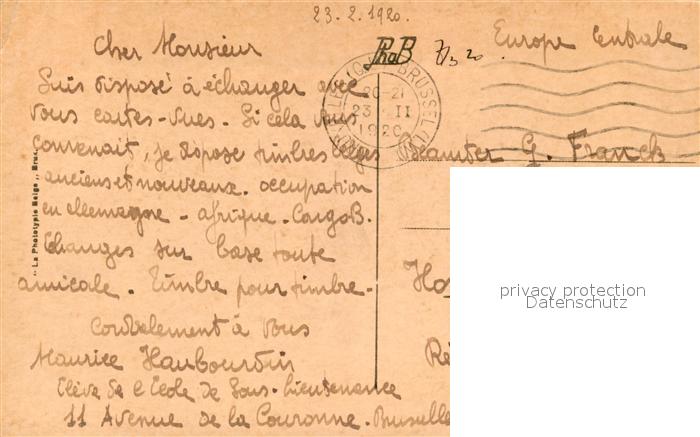 23.2.1920.
Cher Monsieur
Suis disposé à échanger avec
vous cartes-vues. Si cela vous
convenait, je dispose timbres belges
anciens et nouveaux. occupation
en allemagne - afrique. Congo B.
Echanges sur base toute
amicale. Timbre pour timbre-
Cordialement à vous
Maurice Haubourdin
Elève de l'Ecole de Sous-Lieutenance
11 Avenue de la Couronne. Bruxelle
PhoB
Europe Centrale
BRUSSEL
20-21
23 II
1920
Beamter G. Franck
Ho
Ré
"La Phototypie Belge", Brux.
privacy protection
Datenschutz